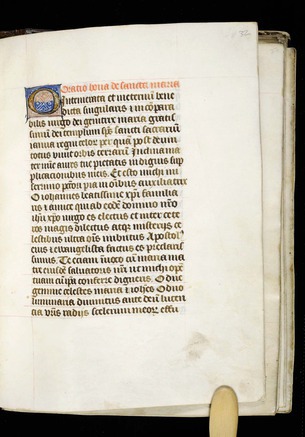 Oratio bona de sancta maria
O intemerata et ineternū bene
dicta singularis incōpara
bilis virgo dei genitrix maria gratis
simū dei templum spū sancti sacrariū
ianua regni celor per quā post deum
totus vivit orbis terrarū Inclina ma
ter mīe aures tue pietatis indignis sup
plicationibus meis Et esto michi mi
serrimo pctōri pia in oībus auxiliatrix
O iohannes beatissime xpi familia
ris amice qui ab eodē domino nrō
ihū xpo virgo es electus et inter cete
ros magis dilectus atqz misterijs ce
lestibus ultra oēs imbutus Apostol
eius et ewangelista factus es preclaris
simus Te etiam invoco cū maria ma
tre eiusdē salvatoris nrī ut michi opē
tuam cū ipa conferre digneris O due
gemme celestes maria et iohes O duo
luminaria divinitus ante deū lucen
tia vris radijs scelerum meor effu